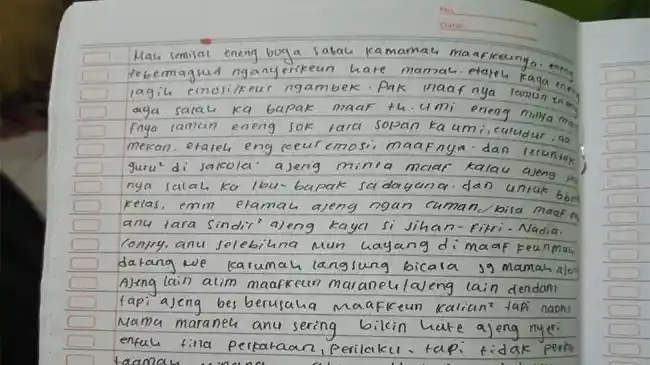 Mah semisal eneng boga salah kamamah maafkeunya. eneng
tebermagsud nganyerikeun hate mamah. etateh kaya eneng
lagih emosi/keur ngambek. Pak maaf nya lamun eneng
aya salah ka bapak maaf th. umi eneng minta maa
fnya lamun eneng sok tara sopan ka umi,
mekan. etateh eng keur emosi, maafnya. dan teruntuk
guru² di sakola. ajeng minta maaf kalau ajeng
nya salah ka Ibu-bapak sadayana. dan untuk
kelas, emm etamah ajeng ngan cuman/bisa maaf
anu tara Sindir² ajeng kaya si Jihan-Fitri-Nadia.
anu selebihna mun hayang di maaf keunmah
datang we karumah langsung bicara sg mamah ajeng
Ajeng lain alim maafkeun maraneh/ajeng lain dendam
tapi ajeng bes berusaha maafkeun kalian² tapi naon
Nama maraneh anu sering bikin hate ajeng nyeri
entah tina perkataan, perilaku. tapi tidak